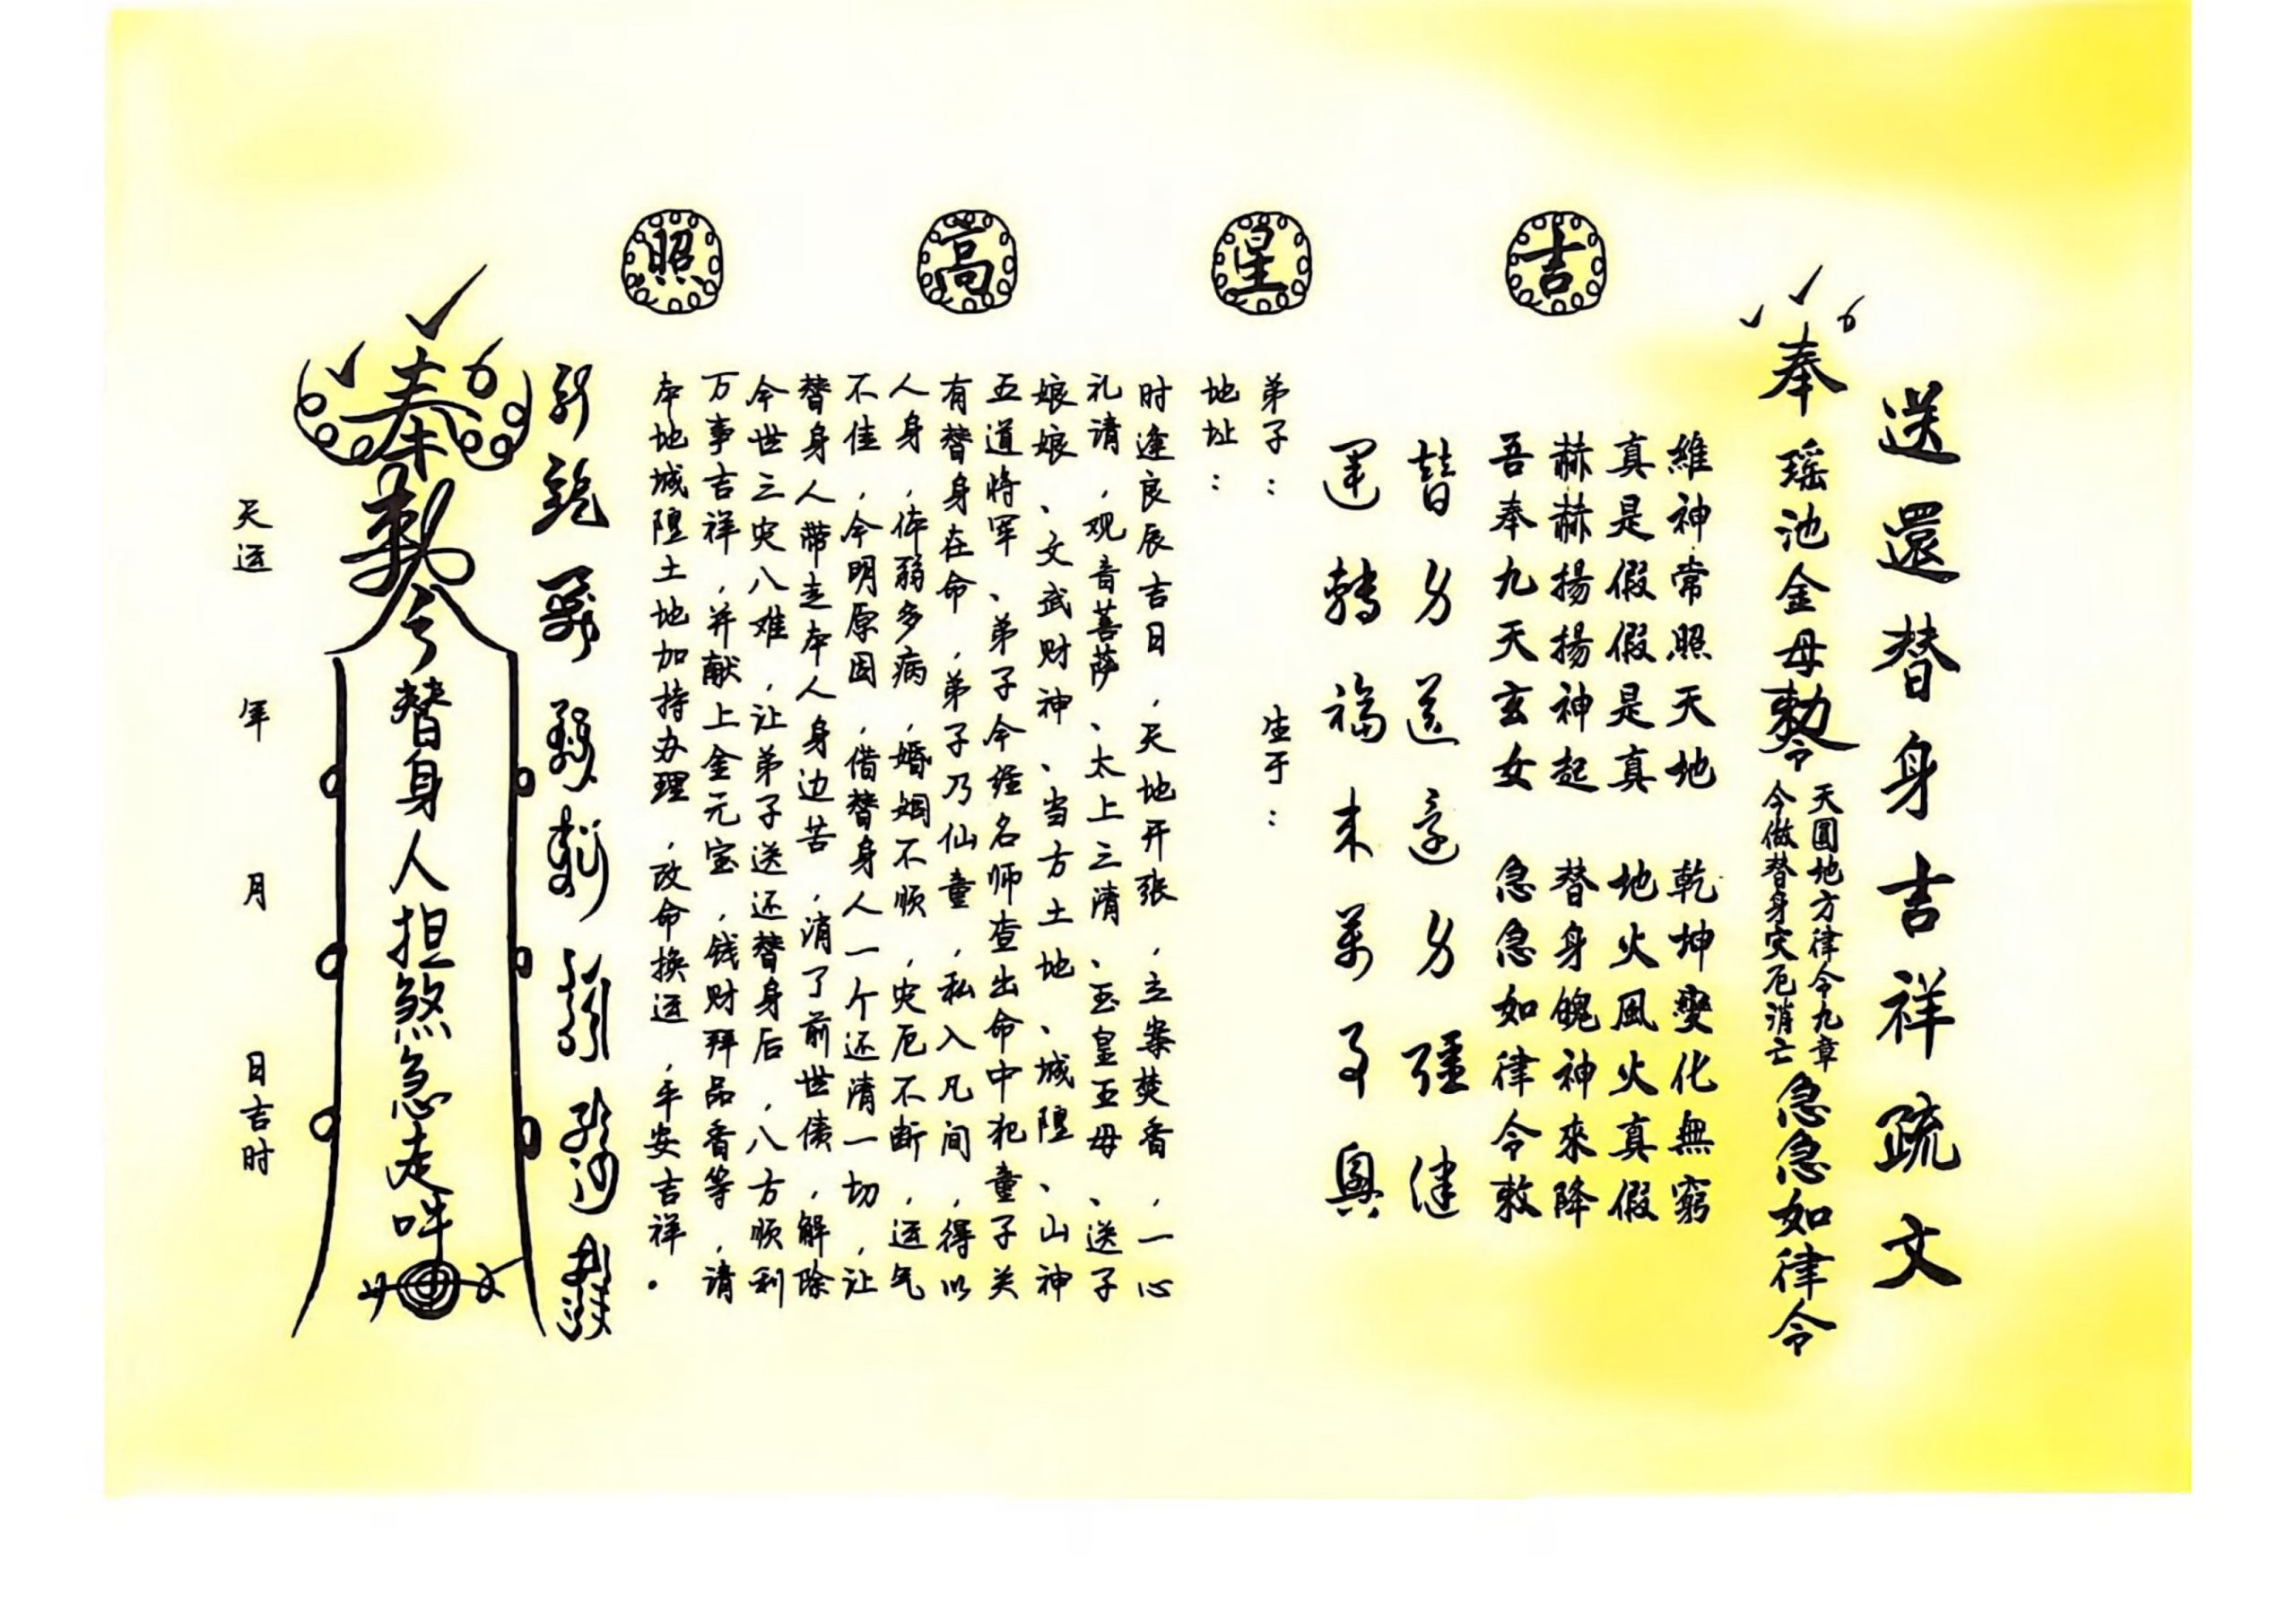 吉星高照
送還替身吉祥疏文
奉瑶池金母敕令
天圓地方律令九章
今做替身灾厄消亡
急急如律令
維神常照天地 乾坤變化無窮
真是假假是真 地火風火真假
赫赫揚揚神起 替身魄神來降
吾奉九天玄女 急急如律令敕
運轉福来
弟子： 生于：
地址：
时逢良辰吉日，天地开张，立案焚香，一心
礼请，观音菩萨、太上三清、玉皇王母、送子
娘娘、文武财神、当方土地、城隍、山神
五道将军、弟子今经名师查出命中犯童子关
有替身在命，弟子乃仙童，私入凡间，得以
人身，体弱多病，婚姻不顺，灾厄不断，运气
不佳，今明原因，借替身人一个还清一切，让
替身人带走本人身边苦，消了前世债，解除
今世三灾八难，让弟子送还替身后，八方顺利
万事吉祥，并献上金元宝，钱财拜品香等，请
本地城隍土地加持办理，改命换运，平安吉祥。
奉敕令替身人担煞急走吽
天运 年 月 日吉时